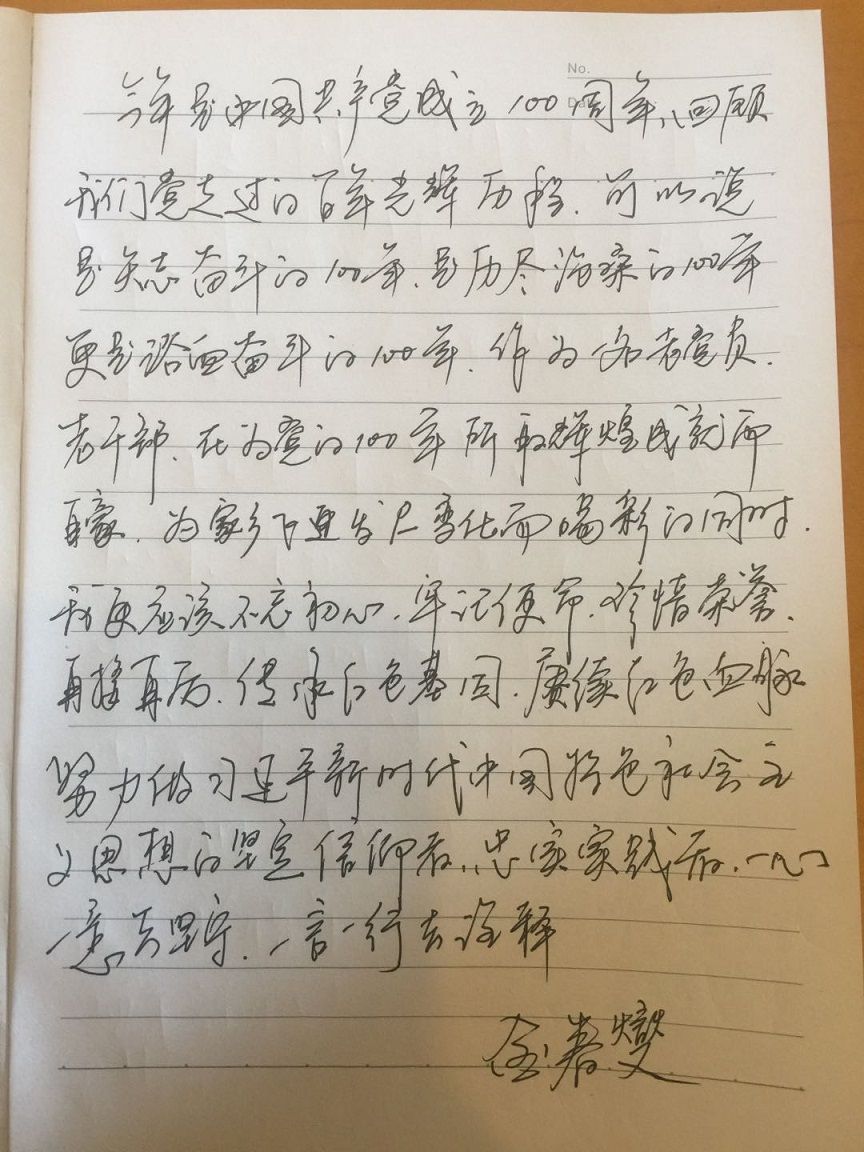 No.
今年是中国共产党成立100周年,回顾
我们党走过的百年光辉历程,可以说
是矢志奋斗的100年,是历尽沧桑的100年
更是浴血奋斗的100年,作为一名老党员,
老干部,在为党的100年所取辉煌成就而
自豪,为家乡下连发生变化而喝彩的同时,
我更应该不忘初心,牢记使命,珍惜荣誉,
再接再厉,传承红色基因,赓续红色血脉
努力做习近平新时代中国特色社会主
义思想的坚定信仰者,忠实实践者,一心
一意去坚守,一言一行去诠释
金春燮